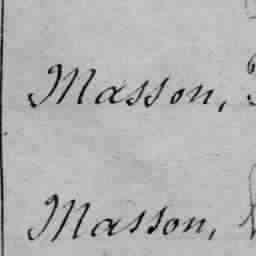 Masson,
Masson,